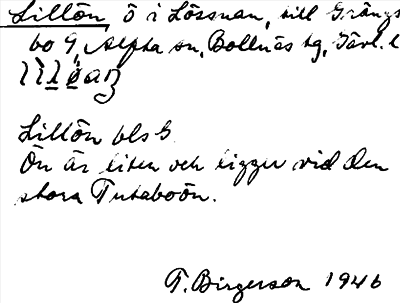 Lillön ö i Lössnan, till Gräng
bo 9, Alfta sn, Bollnäs tg, Gävl. l
Lillön bls G
Ön är liten och ligger vid den
stora Tutaboön.
T. Birgerson 1946